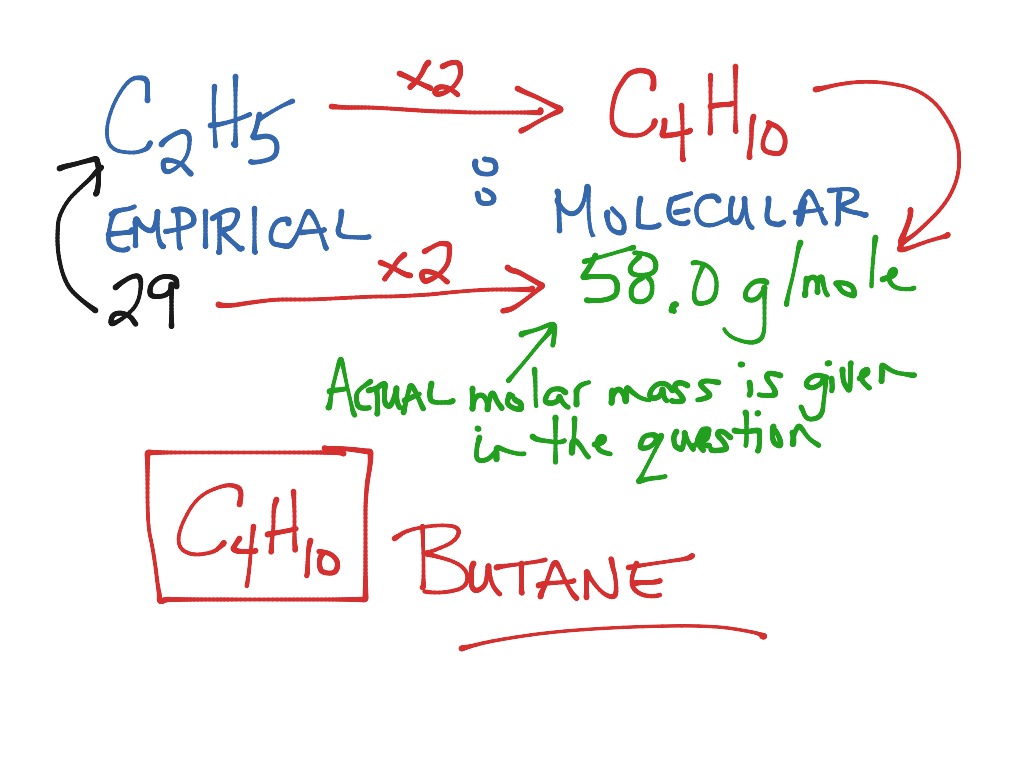 C₂H₅ ×2 C₄H₁₀
EMPIRICAL : MOLECULAR
29 ×2 58.0 g/mole
ACTUAL molar mass is given
in the question
C₄H₁₀ BUTANE